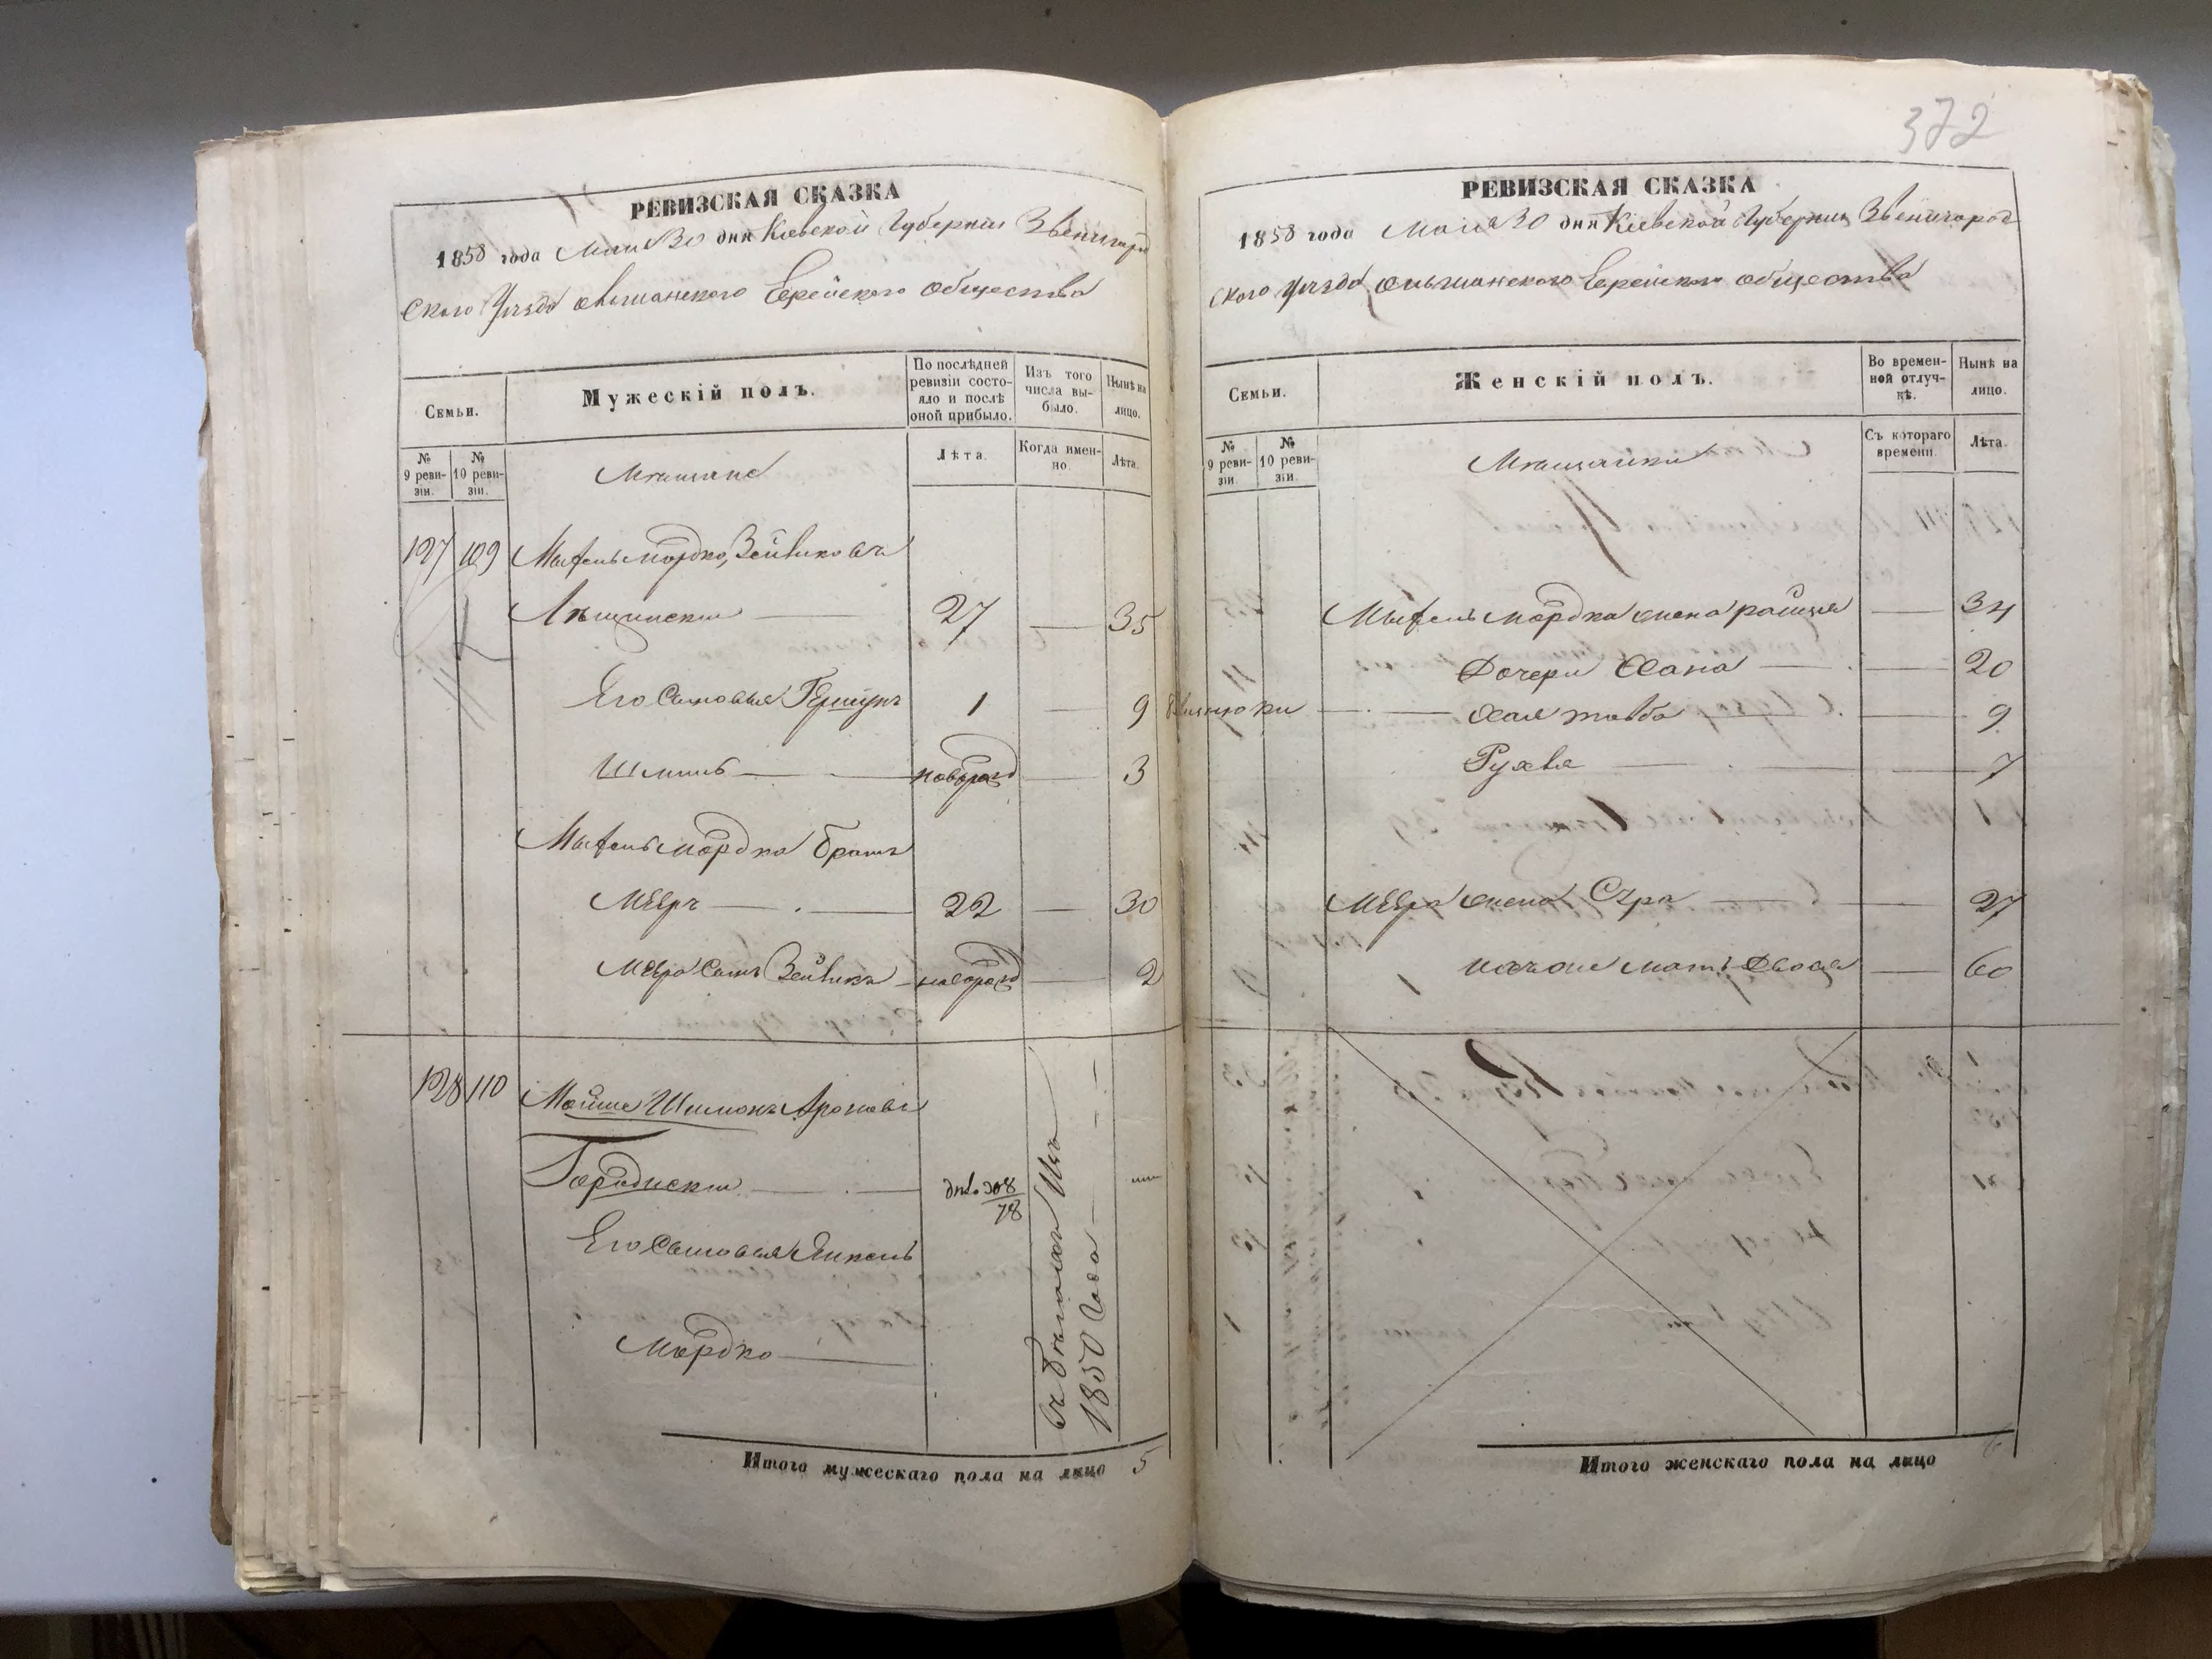 РЕВИЗСКАЯ СКАЗКА
1858 года Мая 30 дня Кіевской Губерніи Звенигород
ского Уѣзда Ольшанского Еврейского общества
Семьи.
Мужескій полъ.
По послѣдней ревизіи состояло и послѣ оной прибыло.
Изъ того числа выбыло.
Нынѣ на лицо.
№ 9 ревизіи.
№ 10 ревизіи.
Мѣщане
Лѣта.
Когда именно.
Лѣта.
127 109 Мордко Зейвиковъ
27 — 35
Его Сыновья Гершунъ 1 — 9
Шмиль — новорожд — 3
Мордка братъ
Мееръ — 22 — 30
Меера Сынъ Зейвикъ новорожд — 2
128 110 Мойше Шимонъ Ароновъ
Городиски —
Его Сыновья Янкель
Мордко —
1850 Года
Итого мужескаго пола на лицо 5
372
РЕВИЗСКАЯ СКАЗКА
1858 года Мая 30 дня Кіевской Губерніи Звенигород
ского Уѣзда Ольшанского Еврейского общества
Семьи.
Женскій полъ.
Во временной отлучкѣ.
Нынѣ на лицо.
№ 9 ревизіи.
№ 10 ревизіи.
Мѣщанки
Съ котораго времени.
Лѣта.
Мордка жена — 34
Дочери Хана — 20
Хая Тавба — 9
Рухля — 7
Меера жена Сура — 27
мать Двося — 60
Итого женскаго пола на лицо 6